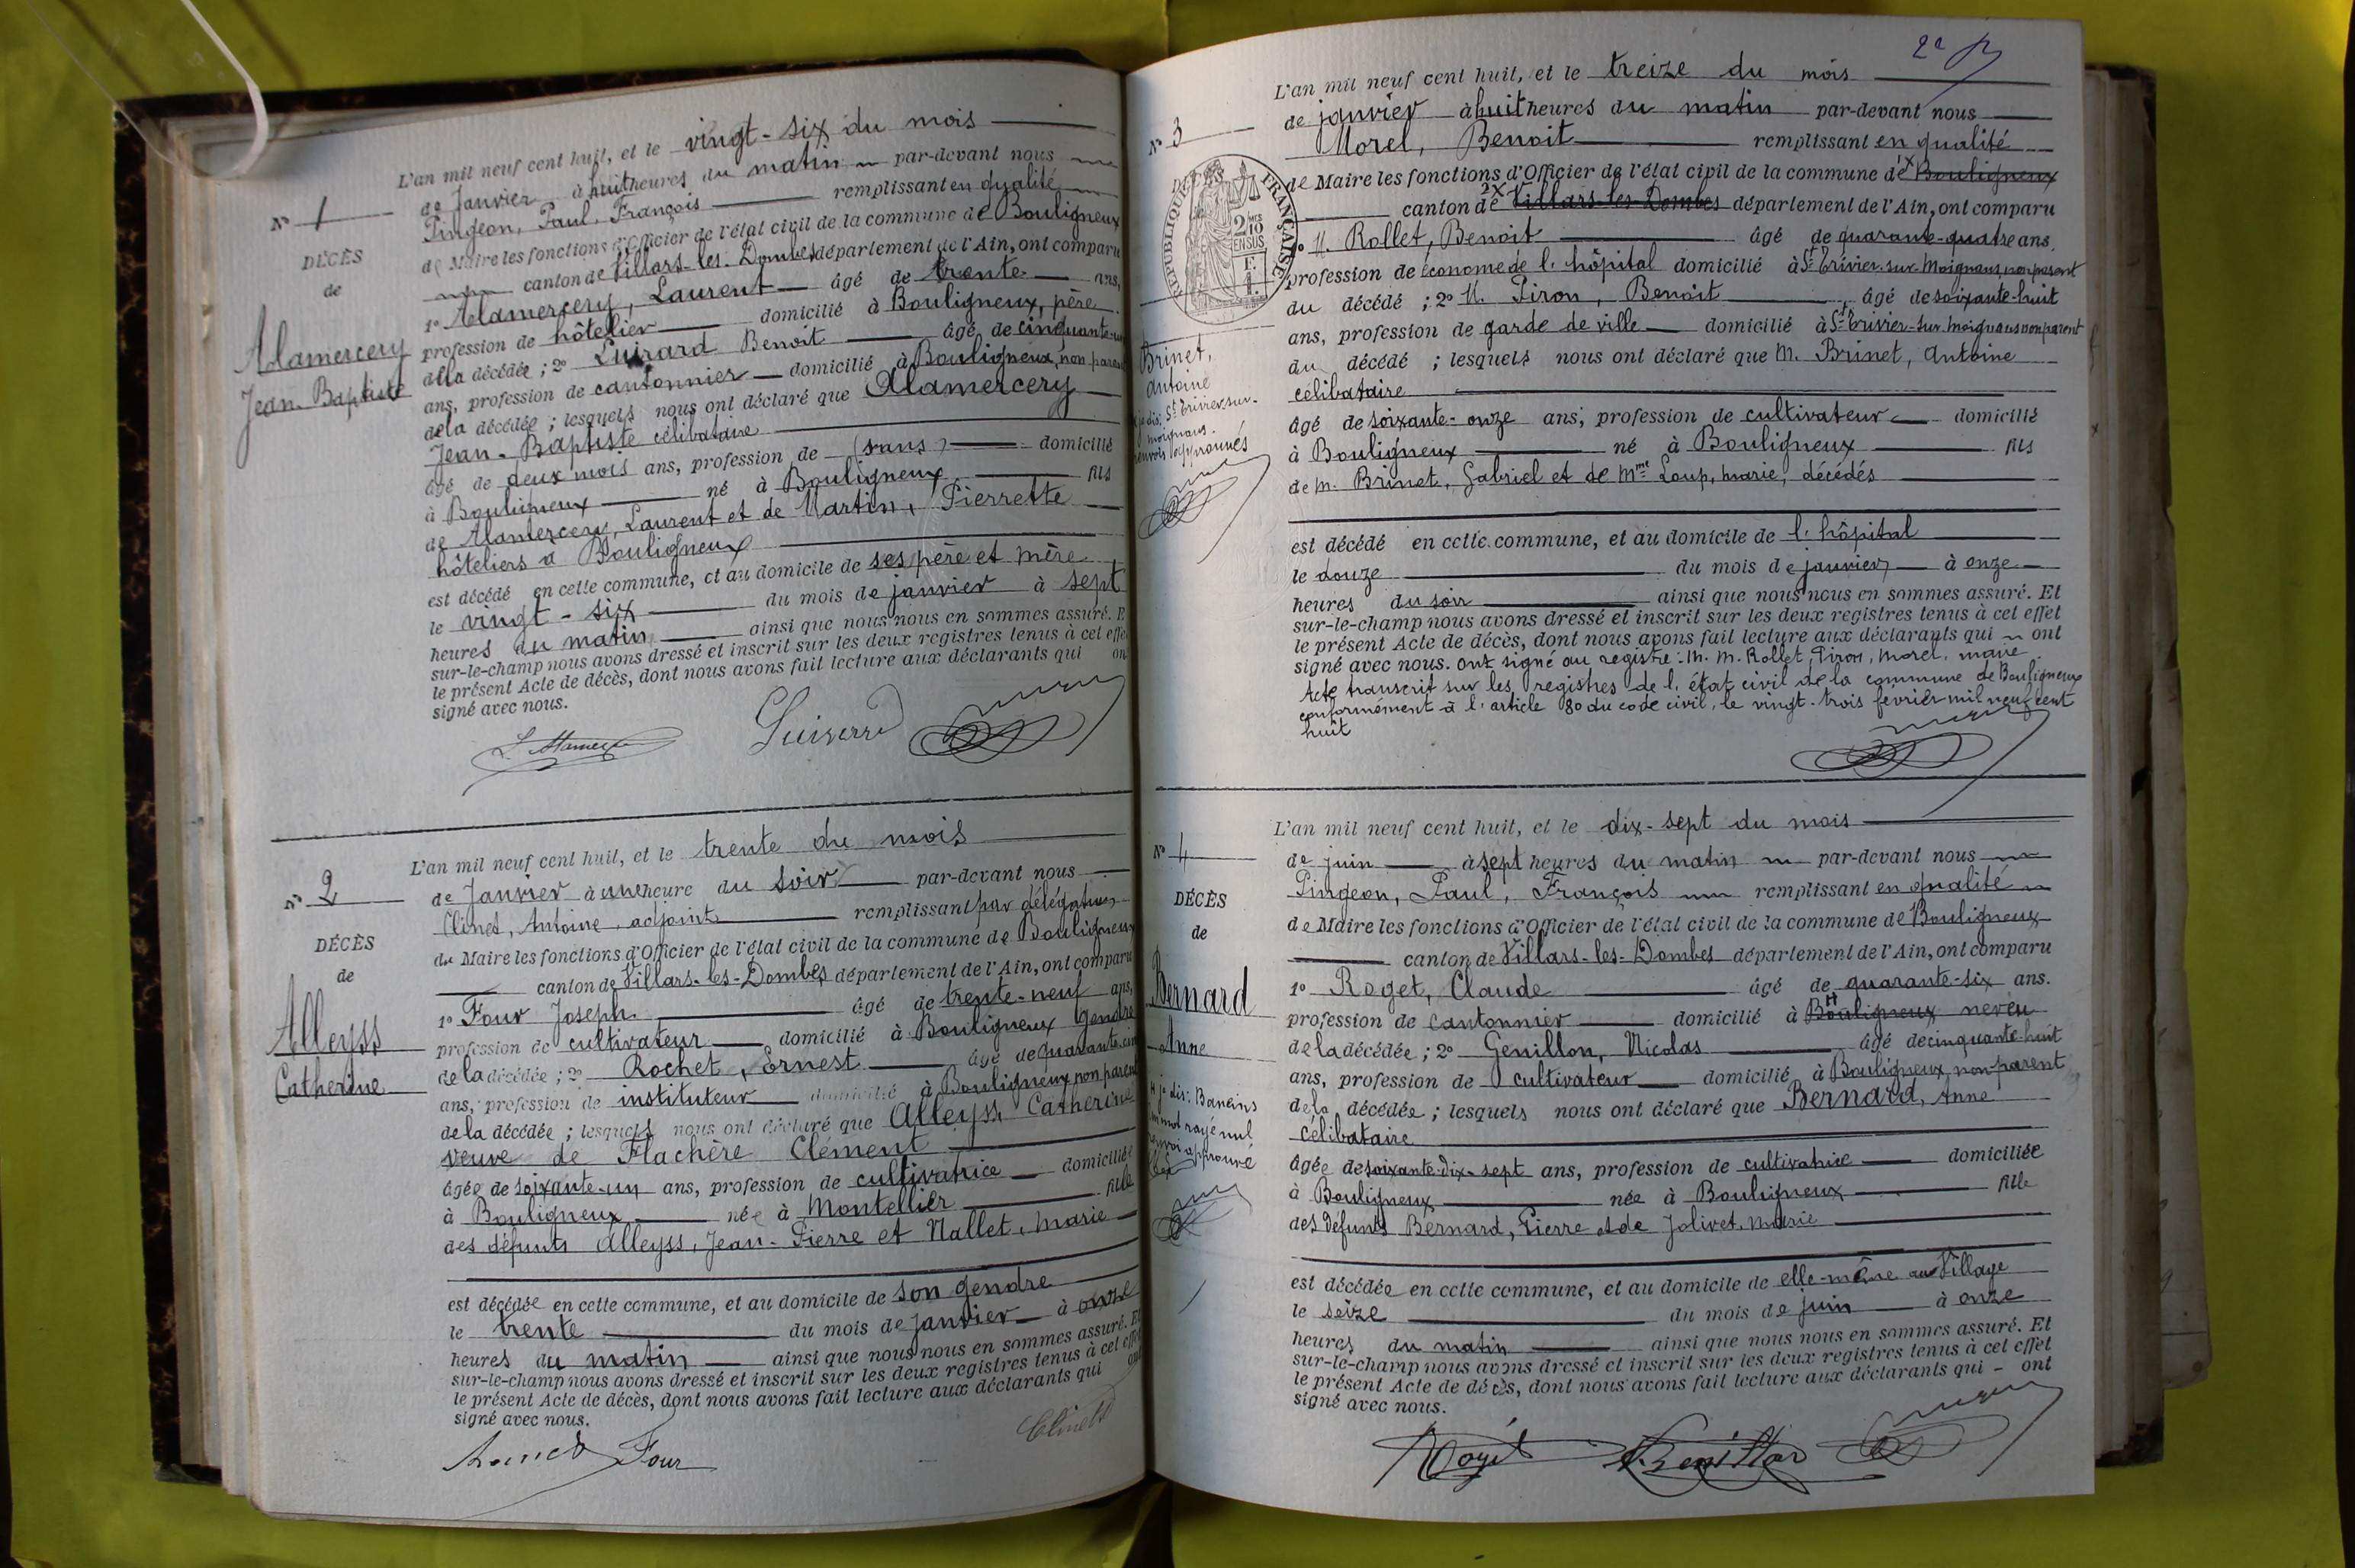 N° 1
DÉCÈS
de
Alamercery
Jean-Baptiste
L'an mil neuf cent huit, et le vingt-six du mois
de Janvier à huit heures du matin par-devant nous
Pingeon, Paul, François remplissant en qualité
de Maire les fonctions d'Officier de l'état civil de la commune de Bouligneux
canton de Villars-les-Dombes département de l'Ain, ont comparu
1° Alamercery, Laurent âgé de trente ans,
profession de hôtelier domicilié à Bouligneux, père
de la décédée ; 2° Guirard Benoit âgé de cinquante-un
ans, profession de cantonnier domicilié à Bouligneux, non parent
de la décédée ; lesquels nous ont déclaré que Alamercery
Jean-Baptiste célibataire
âgé de deux mois ans, profession de (sans) domicilié
à Bouligneux né à Bouligneux fils
de Alamercery, Laurent et de Martin, Pierrette
hôteliers à Bouligneux
est décédé en cette commune, et au domicile de ses père et mère
le vingt-six du mois de janvier à sept
heures du matin ainsi que nous nous en sommes assuré. E
sur-le-champ nous avons dressé et inscrit sur les deux registres tenus à cet effe
le présent Acte de décès, dont nous avons fait lecture aux déclarants qui on
signé avec nous.
N° 2
DÉCÈS
de
Alleyss
Catherine
L'an mil neuf cent huit, et le trente du mois
de Janvier à une heure du soir par-devant nous
Clinet, Antoine, adjoint remplissant par délégation
du Maire les fonctions d'Officier de l'état civil de la commune de Bouligneux
canton de Villars-les-Dombes département de l'Ain, ont comparu
1° Four Joseph âgé de trente-neuf ans,
profession de cultivateur domicilié à Bouligneux gendre
de la décédée ; 2° Rochet, Ernest âgé de quarante-cinq
ans, profession de instituteur domicilié à Bouligneux non parent
de la décédée ; lesquels nous ont déclaré que Alleyss Catherine
veuve de Flachère Clément
âgée de soixante-un ans, profession de cultivatrice domiciliée
à Bouligneux née à Montellier fille
des défunts Alleyss, Jean-Pierre et Mallet, Marie
est décédée en cette commune, et au domicile de son gendre
le trente du mois de janvier à onze
heures du matin ainsi que nous nous en sommes assuré. Et
sur-le-champ nous avons dressé et inscrit sur les deux registres tenus à cet effet
le présent Acte de décès, dont nous avons fait lecture aux déclarants qui ont
signé avec nous.
Four
Clinet
N° 3
RÉPUBLIQUE FRANÇAISE
Brinet,
Antoine
je dis: St Trivier-sur-
moignans.
renvois approuvés
L'an mil neuf cent huit, et le treize du mois
de janvier à huit heures du matin par-devant nous
Morel, Benoit remplissant en qualité
de Maire les fonctions d'Officier de l'état civil de la commune de Bouligneux
canton de Villars-les-Dombes département de l'Ain, ont comparu
1° M. Rollet, Benoit âgé de quarante-quatre ans,
profession de économe de l'hôpital domicilié à St Trivier-sur-Moignans, non parent
du décédé ; 2° M. Piron, Benoit âgé de soixante-huit
ans, profession de garde de ville domicilié à St Trivier-sur-moignans non parent
du décédé ; lesquels nous ont déclaré que M. Brinet, Antoine
célibataire
âgé de soixante-onze ans, profession de cultivateur domicilié
à Bouligneux né à Bouligneux fils
de M. Brinet, Gabriel et de Mme Loup, Marie, décédés
est décédé en cette commune, et au domicile de l'hôpital
le douze du mois de janvier à onze
heures du soir ainsi que nous nous en sommes assuré. Et
sur-le-champ nous avons dressé et inscrit sur les deux registres tenus à cet effet
le présent Acte de décès, dont nous avons fait lecture aux déclarants qui ont
signé avec nous. ont signé au registre : M. M. Rollet, Piron, Morel, maire.
Acte transcrit sur les registres de l'état civil de la commune de Bouligneux
conformément à l'article 80 du code civil, le vingt-trois février mil neuf cent
huit
N° 4
DÉCÈS
de
Bernard
Anne
je dis: Baneins
un mot rayé nul
renvoi approuvé
L'an mil neuf cent huit, et le dix-sept du mois
de juin à sept heures du matin par-devant nous
Pingeon, Paul, François remplissant en qualité
de Maire les fonctions d'Officier de l'état civil de la commune de Bouligneux
canton de Villars-les-Dombes département de l'Ain, ont comparu
1° Roget, Claude âgé de quarante-six ans.
profession de cantonnier domicilié à Bouligneux neveu
de la décédée ; 2° Genillon, Nicolas âgé de cinquante-huit
ans, profession de cultivateur domicilié à Bouligneux, non parent
de la décédée ; lesquels nous ont déclaré que Bernard, Anne
célibataire
âgée de soixante-dix-sept ans, profession de cultivatrice domiciliée
à Bouligneux née à Bouligneux fille
des défunts Bernard, Pierre et de Jolivet, Marie
est décédée en cette commune, et au domicile de elle-même au Village
le seize du mois de juin à onze
heures du matin ainsi que nous nous en sommes assuré. Et
sur-le-champ nous avons dressé et inscrit sur les deux registres tenus à cet effet
le présent Acte de décès, dont nous avons fait lecture aux déclarants qui - ont
signé avec nous.
Roget
Genillon